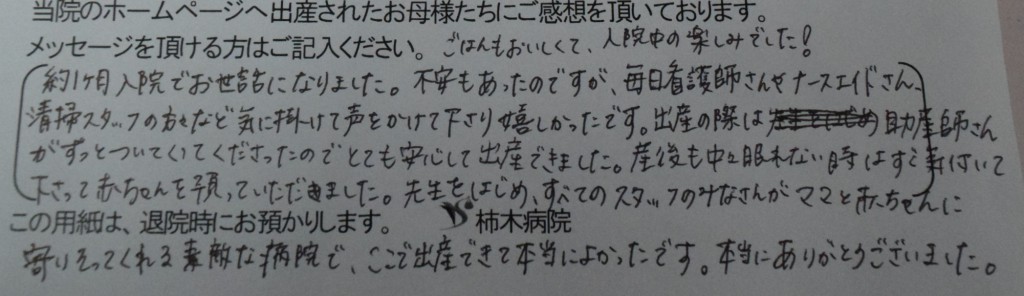 当院のホームページへ出産されたお母様たちにご感想を頂いております。
メッセージを頂ける方はご記入ください。 ごはんもおいしくて、入院中の楽しみでした!
約1ヶ月入院でお世話になりました。不安もあったのですが、毎日看護師さんやナースエイドさん、
清掃スタッフの方々など気に掛けて声をかけて下さり嬉しかったです。出産の際は 助産師さん
がずっとついてくださったのでとても安心して出産できました。産後も中々眠れない時はすぐ気付いて
下さって赤ちゃんを預っていただきました。先生をはじめ、すべてのスタッフのみなさんがママと赤ちゃんに
この用紙は、退院時にお預かりします。 柿木病院
寄りそってくれる素敵な病院で、ここで出産できて本当によかったです。本当にありがとうございました。